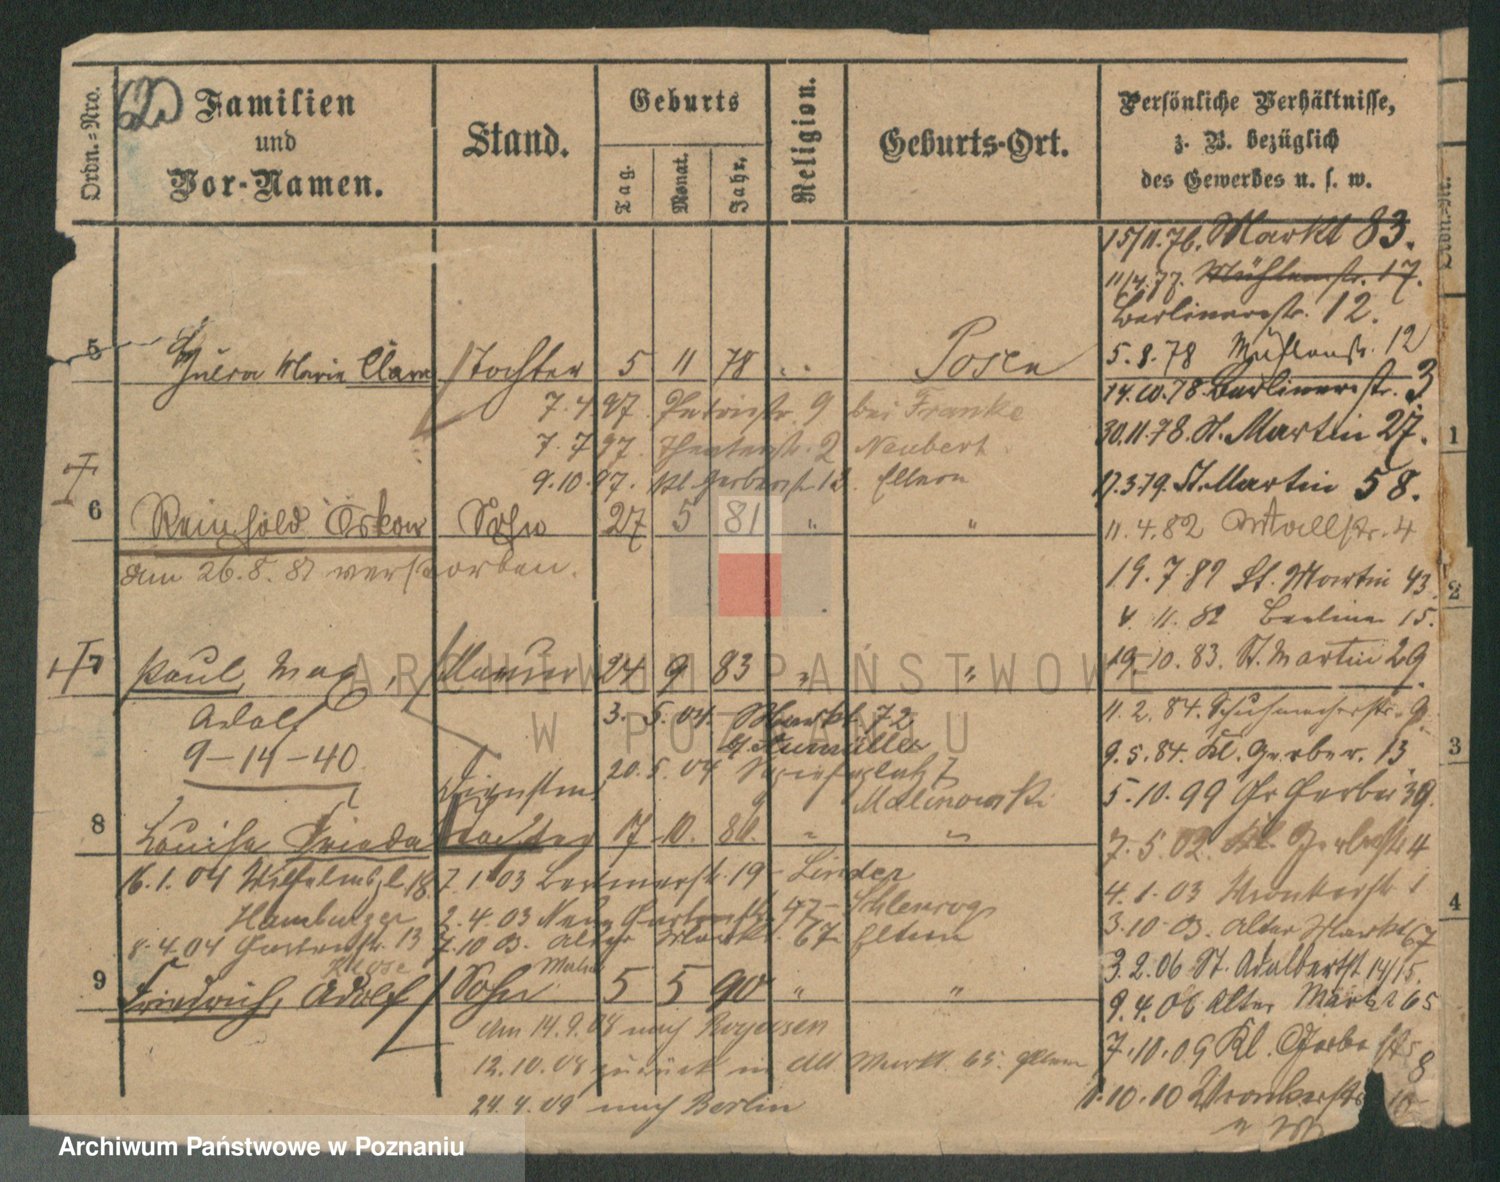 Ordn.=Nro.
Familien
und
Vor-Namen.
Stand.
Geburts
Tag.
Monat.
Jahr,
Religion.
Geburts-Ort.
Persönliche Verhältnisse,
z. B. bezüglich
des Gewerbes u. s. w.
15/11.76. Markt 83.
11/4.77. Mühlenstr. 17.
Berlinerstr. 12.
5.8.78 Mühlenstr. 12
14.10.78. Berlinerstr. 3
30.11.78. St. Martin 27.
17.3.79. St. Martin 58.
11.4.82 Wallstr. 4
19.7.82 St. Martin 43.
4.11.82 Berliner 15.
19.10.83. St. Martin 29.
11.2.84. Schuhmacherstr. 9.
9.5.84. Kl. Gerber. 13
5.10.99 Gr Gerber 39.
7.5.02. Kl. Gerberstr 4
4.1.03 Wronkerstr 1
3.10.03. Alter Markt 67
3.2.06 St. Adalbertst 14/15.
9.4.06 Alter Markt 65
7.10.09 Kl. Gerberstr 8
1.10.10 Wronkerstr
5 Maria Clara Tochter 5 11 78 Posen
7.4.97. 9 bei Franke
7.7.97. Theaterstr. 2 Neubert.
9.10.97. Kl. Gerberstr 13. Eltern
6 Reinhold Oskar Sohn 27 5 81 " "
am 26.8.82 verstorben.
7 Paul, Max, 24 9 83 " "
Adolf
9-14-40
3.5.04. Markt 72
20.5.04
Malinowski
8 Louise Frieda Tochter 17 10. " "
16.1.04 Wilhelmspl 18. 7.1.03 Berlinerstr. 19- Linder
Hamburger 2.4.03 Neue Gartenstr. 47-
8.4.04 Gartenstr. 13 7.10 03. Alter Markt. 67 Eltern
9 Friedrich, Adolf Sohn 5 5 90 " "
am 14.9.08 nach
12.10.08 zurück in Alt Markt. 65. Eltern
24.4.09 nach Berlin
Ordn.-Nr.
1
2
3
4
ARCHIWUM PAŃSTWOWE
W POZNANIU
Archiwum Państwowe w Poznaniu